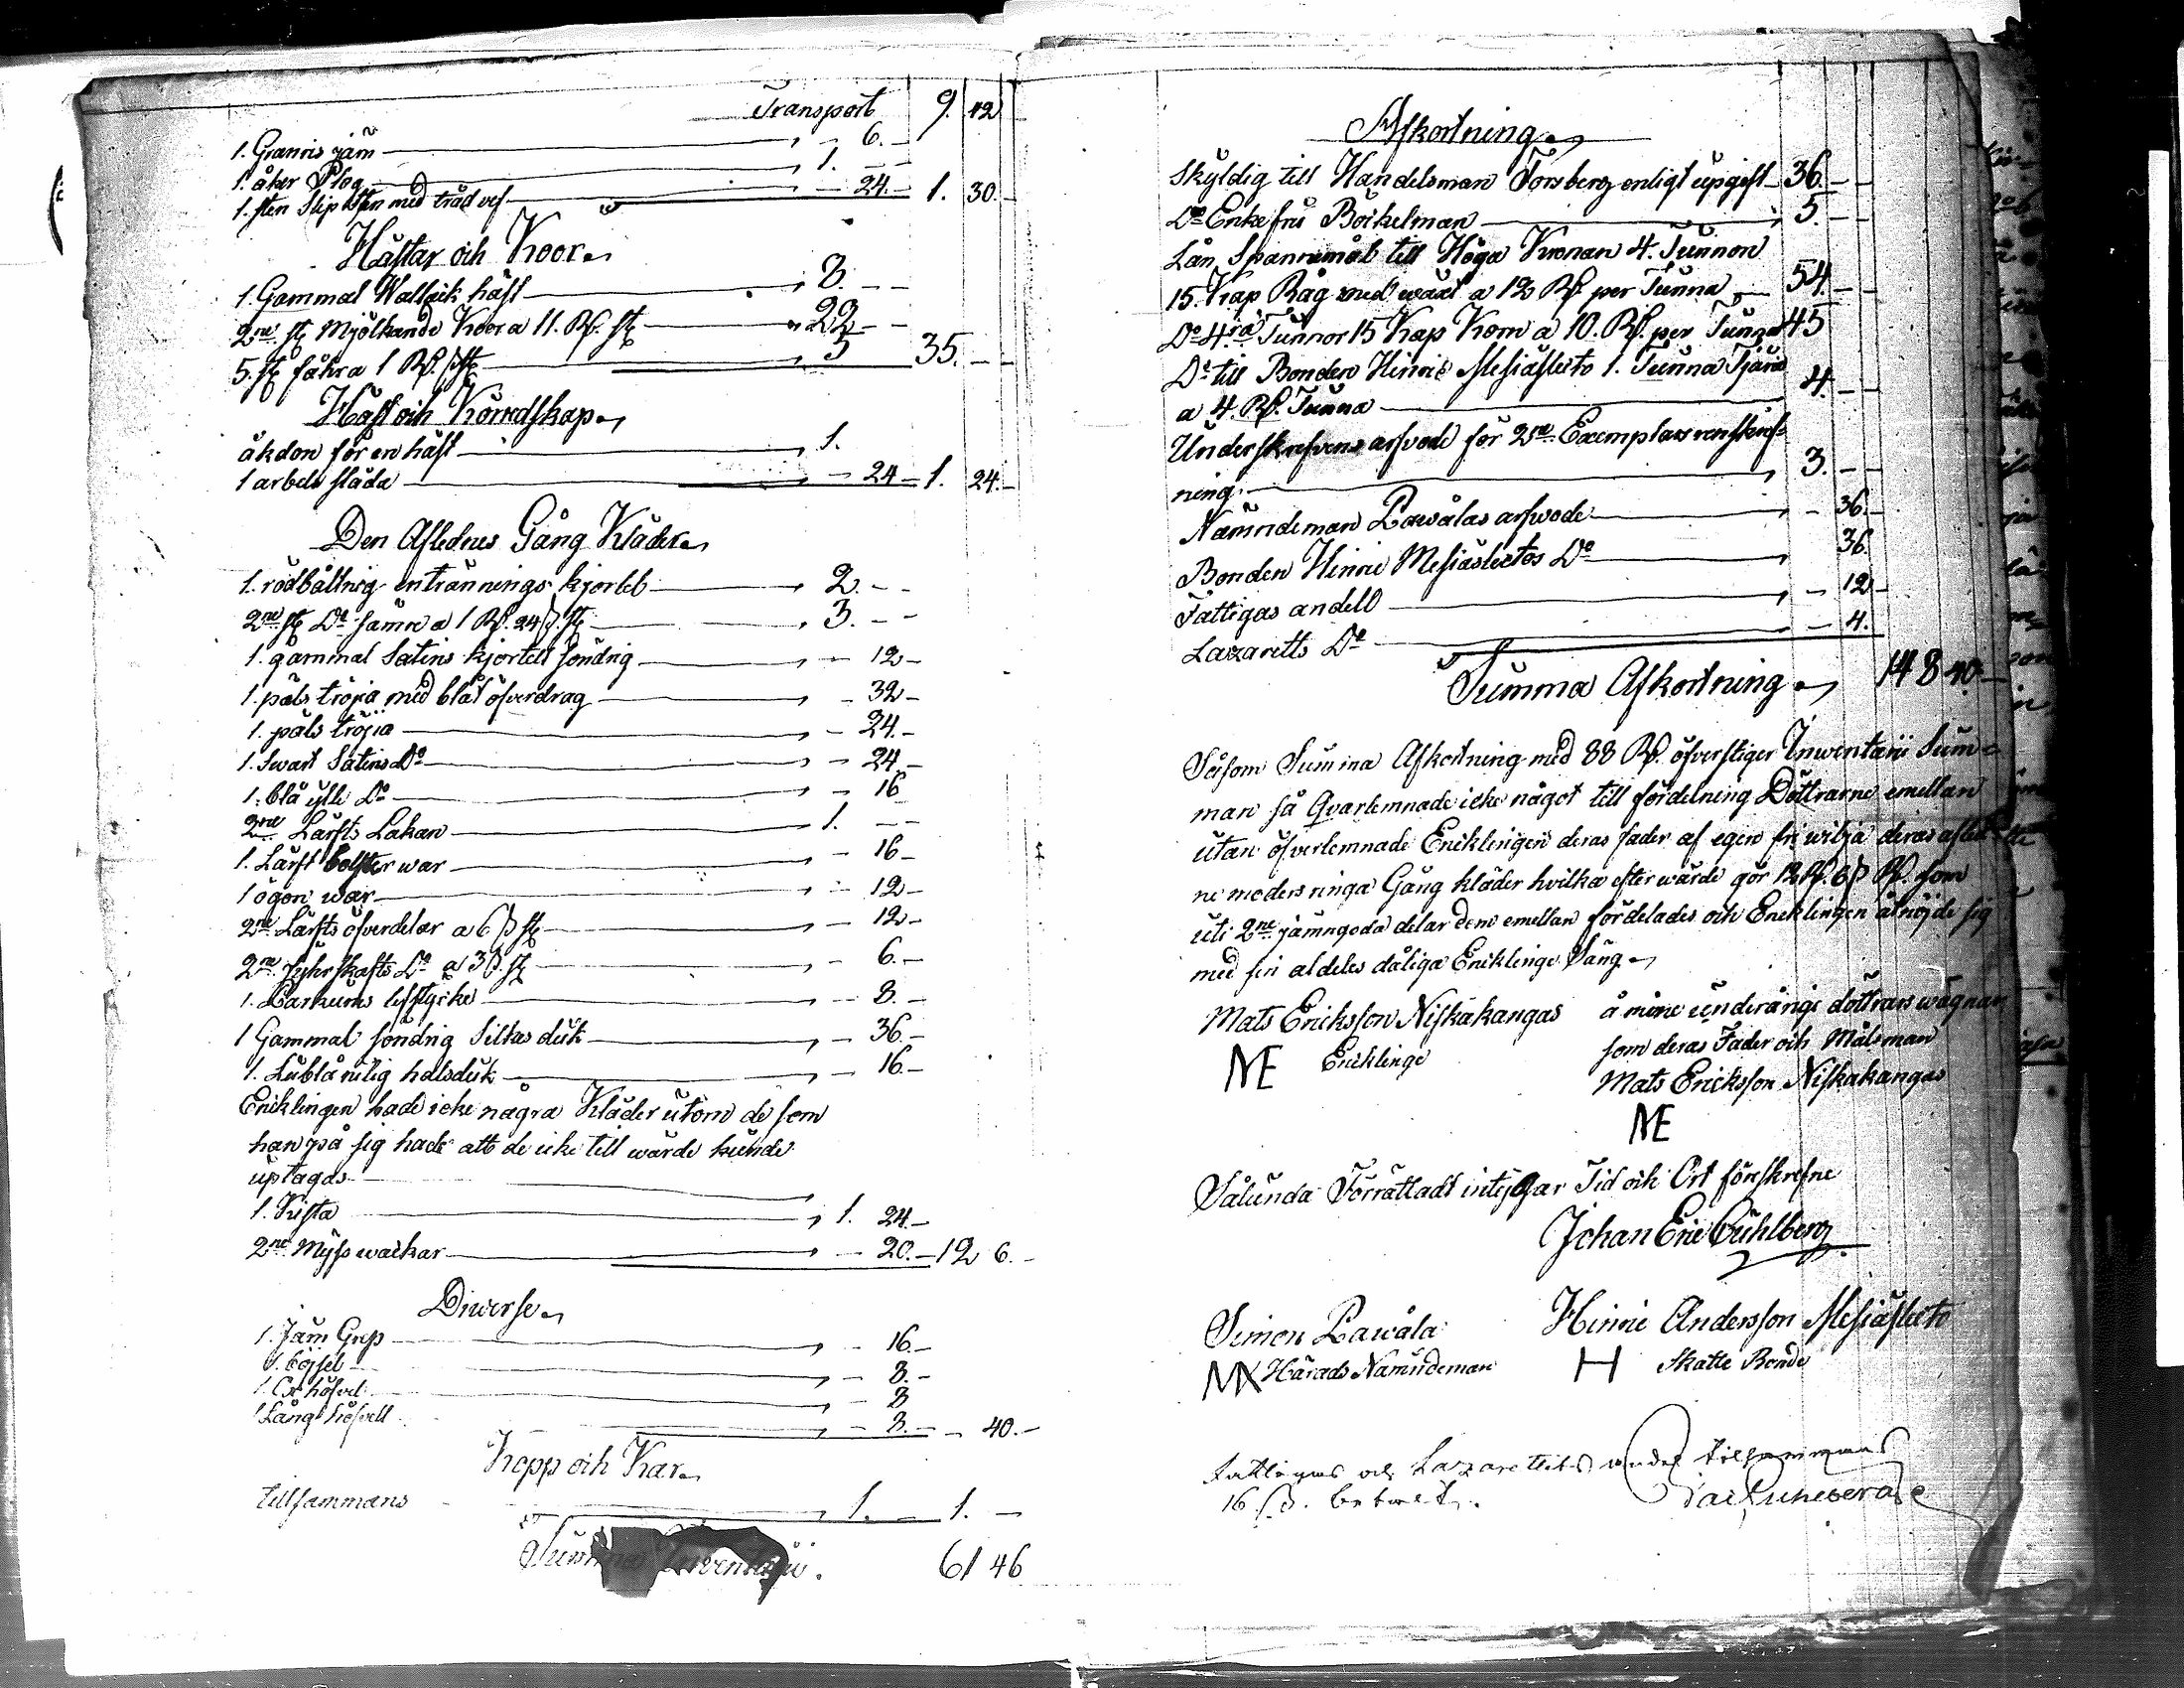 Transport 9. 42
1. Granris järn 6.
1. åker Plog 1.
1. sten Slip Sten med träd vef 24. 1. 30.
Hästar och Koor
1. Gammal Wallack häst 8.
2ne st Mjölkande Koor a 11. Rd. st 22
5. st fåhr a 1 Rd. st 5 35.
Häst och Körredskap
åkdon för en häst 1.
1 arbets släda 24 1. 24.
Den Aflednes Gång Kläder
1. rödbållnig entrännings kjortel 2.
2ne st Do sämre a 1 Rd. 24 s. st 3.
1. gammal Satins kjortell söndrig 12
1. päls tröja med blåt öfverdrag 32
1. päls tröjia 24.
1. Swart Satins Do 24
1. blå ylle Do 16
2ne Lärfts Lakan 1.
1. Lärft bolster war 16
1 ögon war 12
2ne Lärfts öfverdelar a 6 s st 12
2ne fyhrskafts Do a 3 s. st 6.
1. Parkums lifstycke 8.
1 Gammal söndrig Silkes duk 36.
1. Lublå rutig halsduk 16.
Encklingen hade icke några Kläder utom de som
han på sig hade att de icke till wärde kunde
uptagas
1. Kista 1. 24.
2ne Myss wackar 20. 12 6.
Diverse
1. Järn Grep 16.
1. böjsel 8.
1. Ox höfvel 8
1 Lång höfvell 8. 40.
Kopp och Kar
tillsammans 1. 1.
Summa Inventarii. 61 46
Afkortning
Skyldig till Handelsman Forsberg enligt upgift 36.
Do Enkefru Böckelman 5.
Lån Spannemål till Höga Kronan 4. Tunnor
15. Kap Råg med wäxt a 12 Rd. per Tunna 54.
Do 4ra Tunnor 15 Kap Korn a 10. Rd. per Tunna 45
Do till Bonden Hinric Mesiäslecto 1. Tunna Tjära
a 4. Rd. Tunna 4.
Underskrefvens arfvode för 2ne Exemplars renskrif-
ning 3.
Nämndeman Pawålas arfwode 36.
Bonden Hinric Mesiäslectos Do 36.
Fattigas andell 12
Lazaretts Do 4.
Summa Afkortning 148 40
Såsom Summa Afkortning med 88 Rd. öfverstiger Inwentarii Sum-
man så Qvarlemnade icke något till fördelning Döttrarne emellan
utan öfverlemnade Encklingen deras fader af egen fri wilja deras afled-
ne moders ringa Gång kläder hvilka efter wärde gör 12 Rd. 6 s Rd. som
uti 2ne jämngoda delar dem emellan fördelades och Encklingen åtnöjde sig
med sin aldeles dåliga Encklinge Säng
Mats Ericksson Niskakangas
ME Encklinge
å mine underårige döttrars wägnar
som deras Fader och Målsman
Mats Ericksson Niskakangas
ME
Sålunda Förrättadt intygar Tid och Ort förskrefne
Johan Eric Cuhlberg
Simon Pawåla
Härads Nämndeman
Hinric Andersson Mesiäslecto
H Skatte Bonde
Fattigas och Lazarettets andel tillsammans
16. s. betalt.